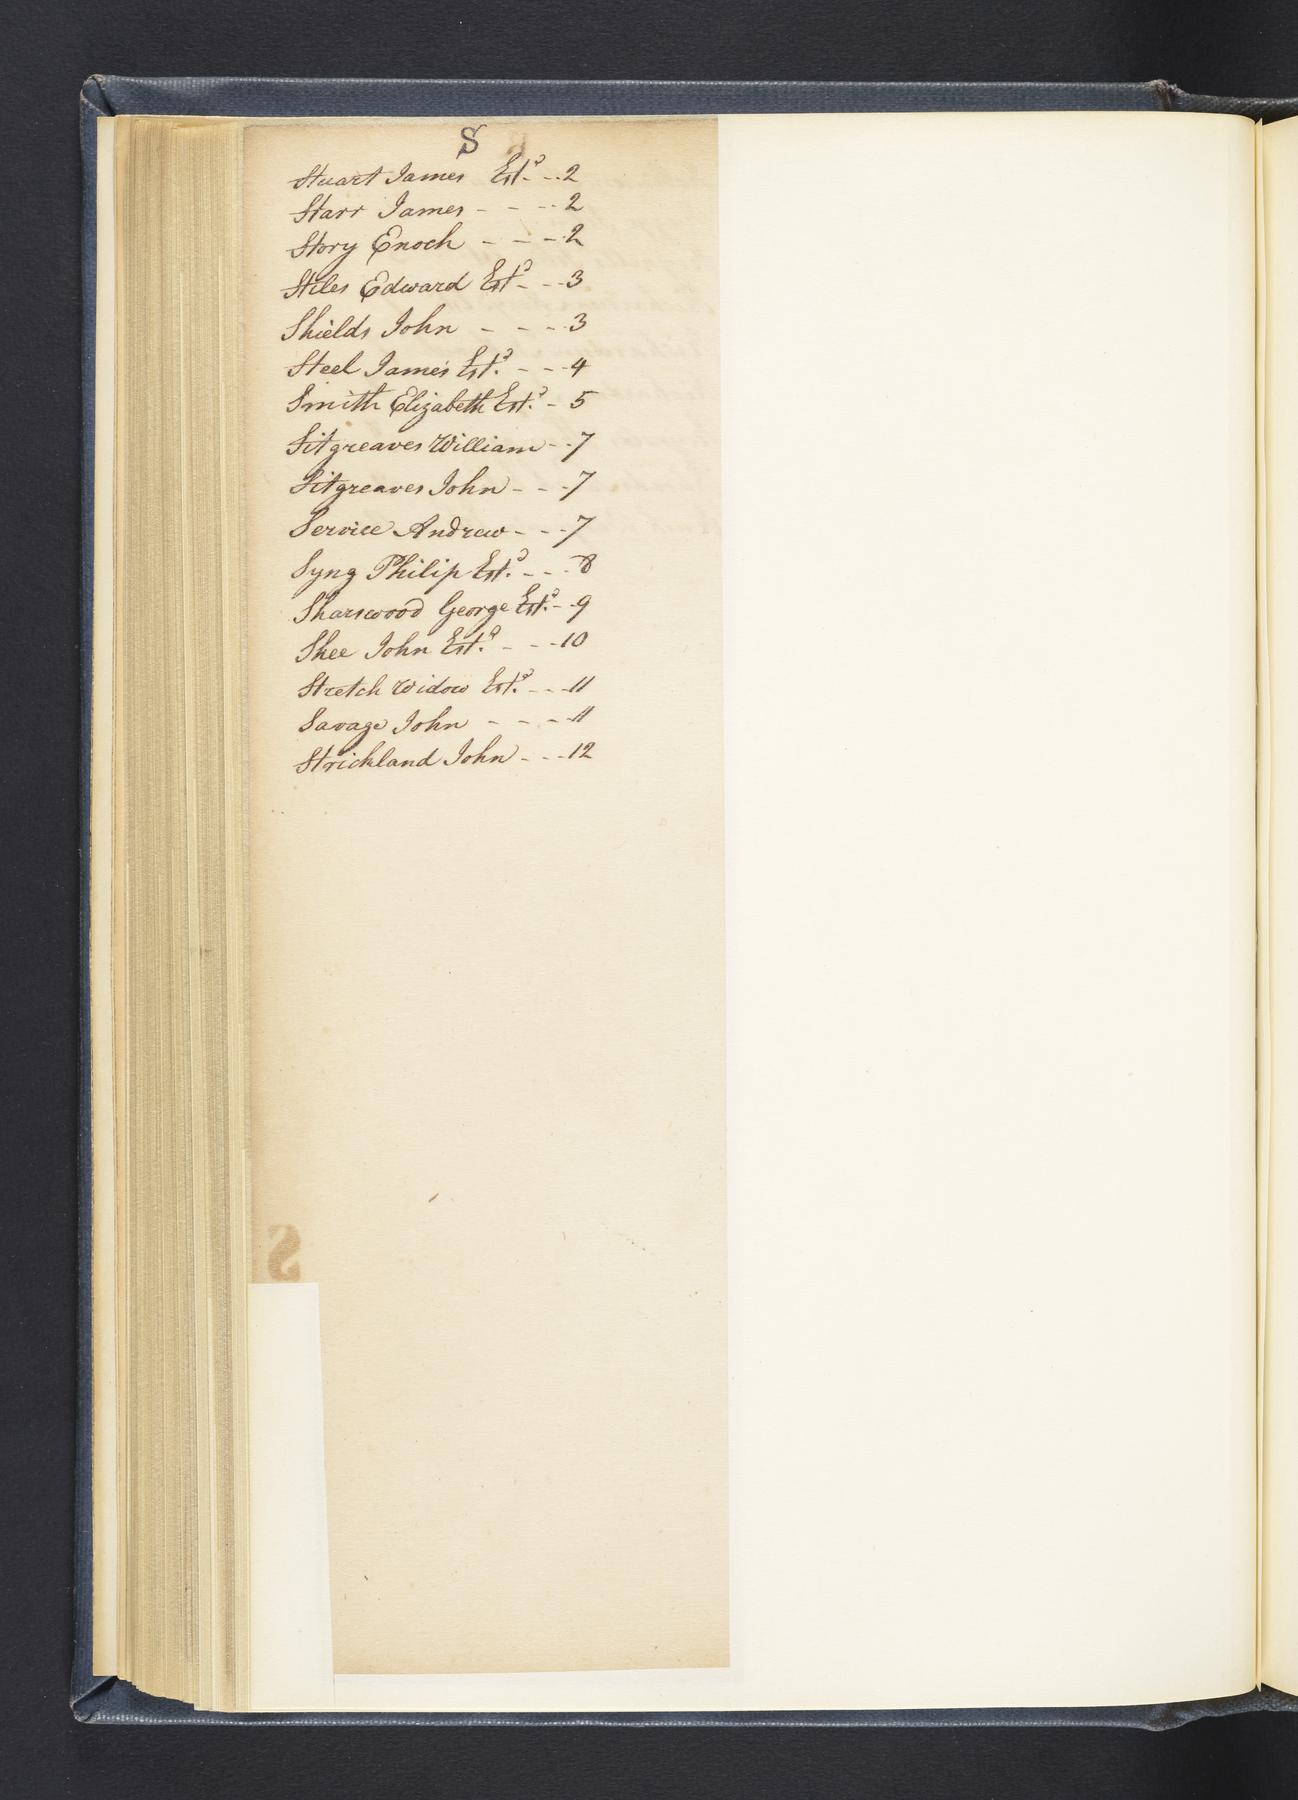 S
Stuart James Est.ᵈ - - 2
Starr James - - - - 2
Story Enoch - - - 2
Stiles Edward Est.ᵈ - - - 3
Shields John - - - - 3
Steel James Est.ᵈ - - - 4
Smith Elizabeth Est.ᵈ - 5
Sitgreaves William - - 7
Sitgreaves John - - - 7
Service Andrew - - - 7
Syng Philip Est.ᵈ - - - 8
Sharswood George Est.ᵈ - - 9
Shee John Est.ᵈ - - - 10
Stretch Widow Est.ᵈ - - - 11
Savage John - - - - 11
Strickland John - - - 12
S